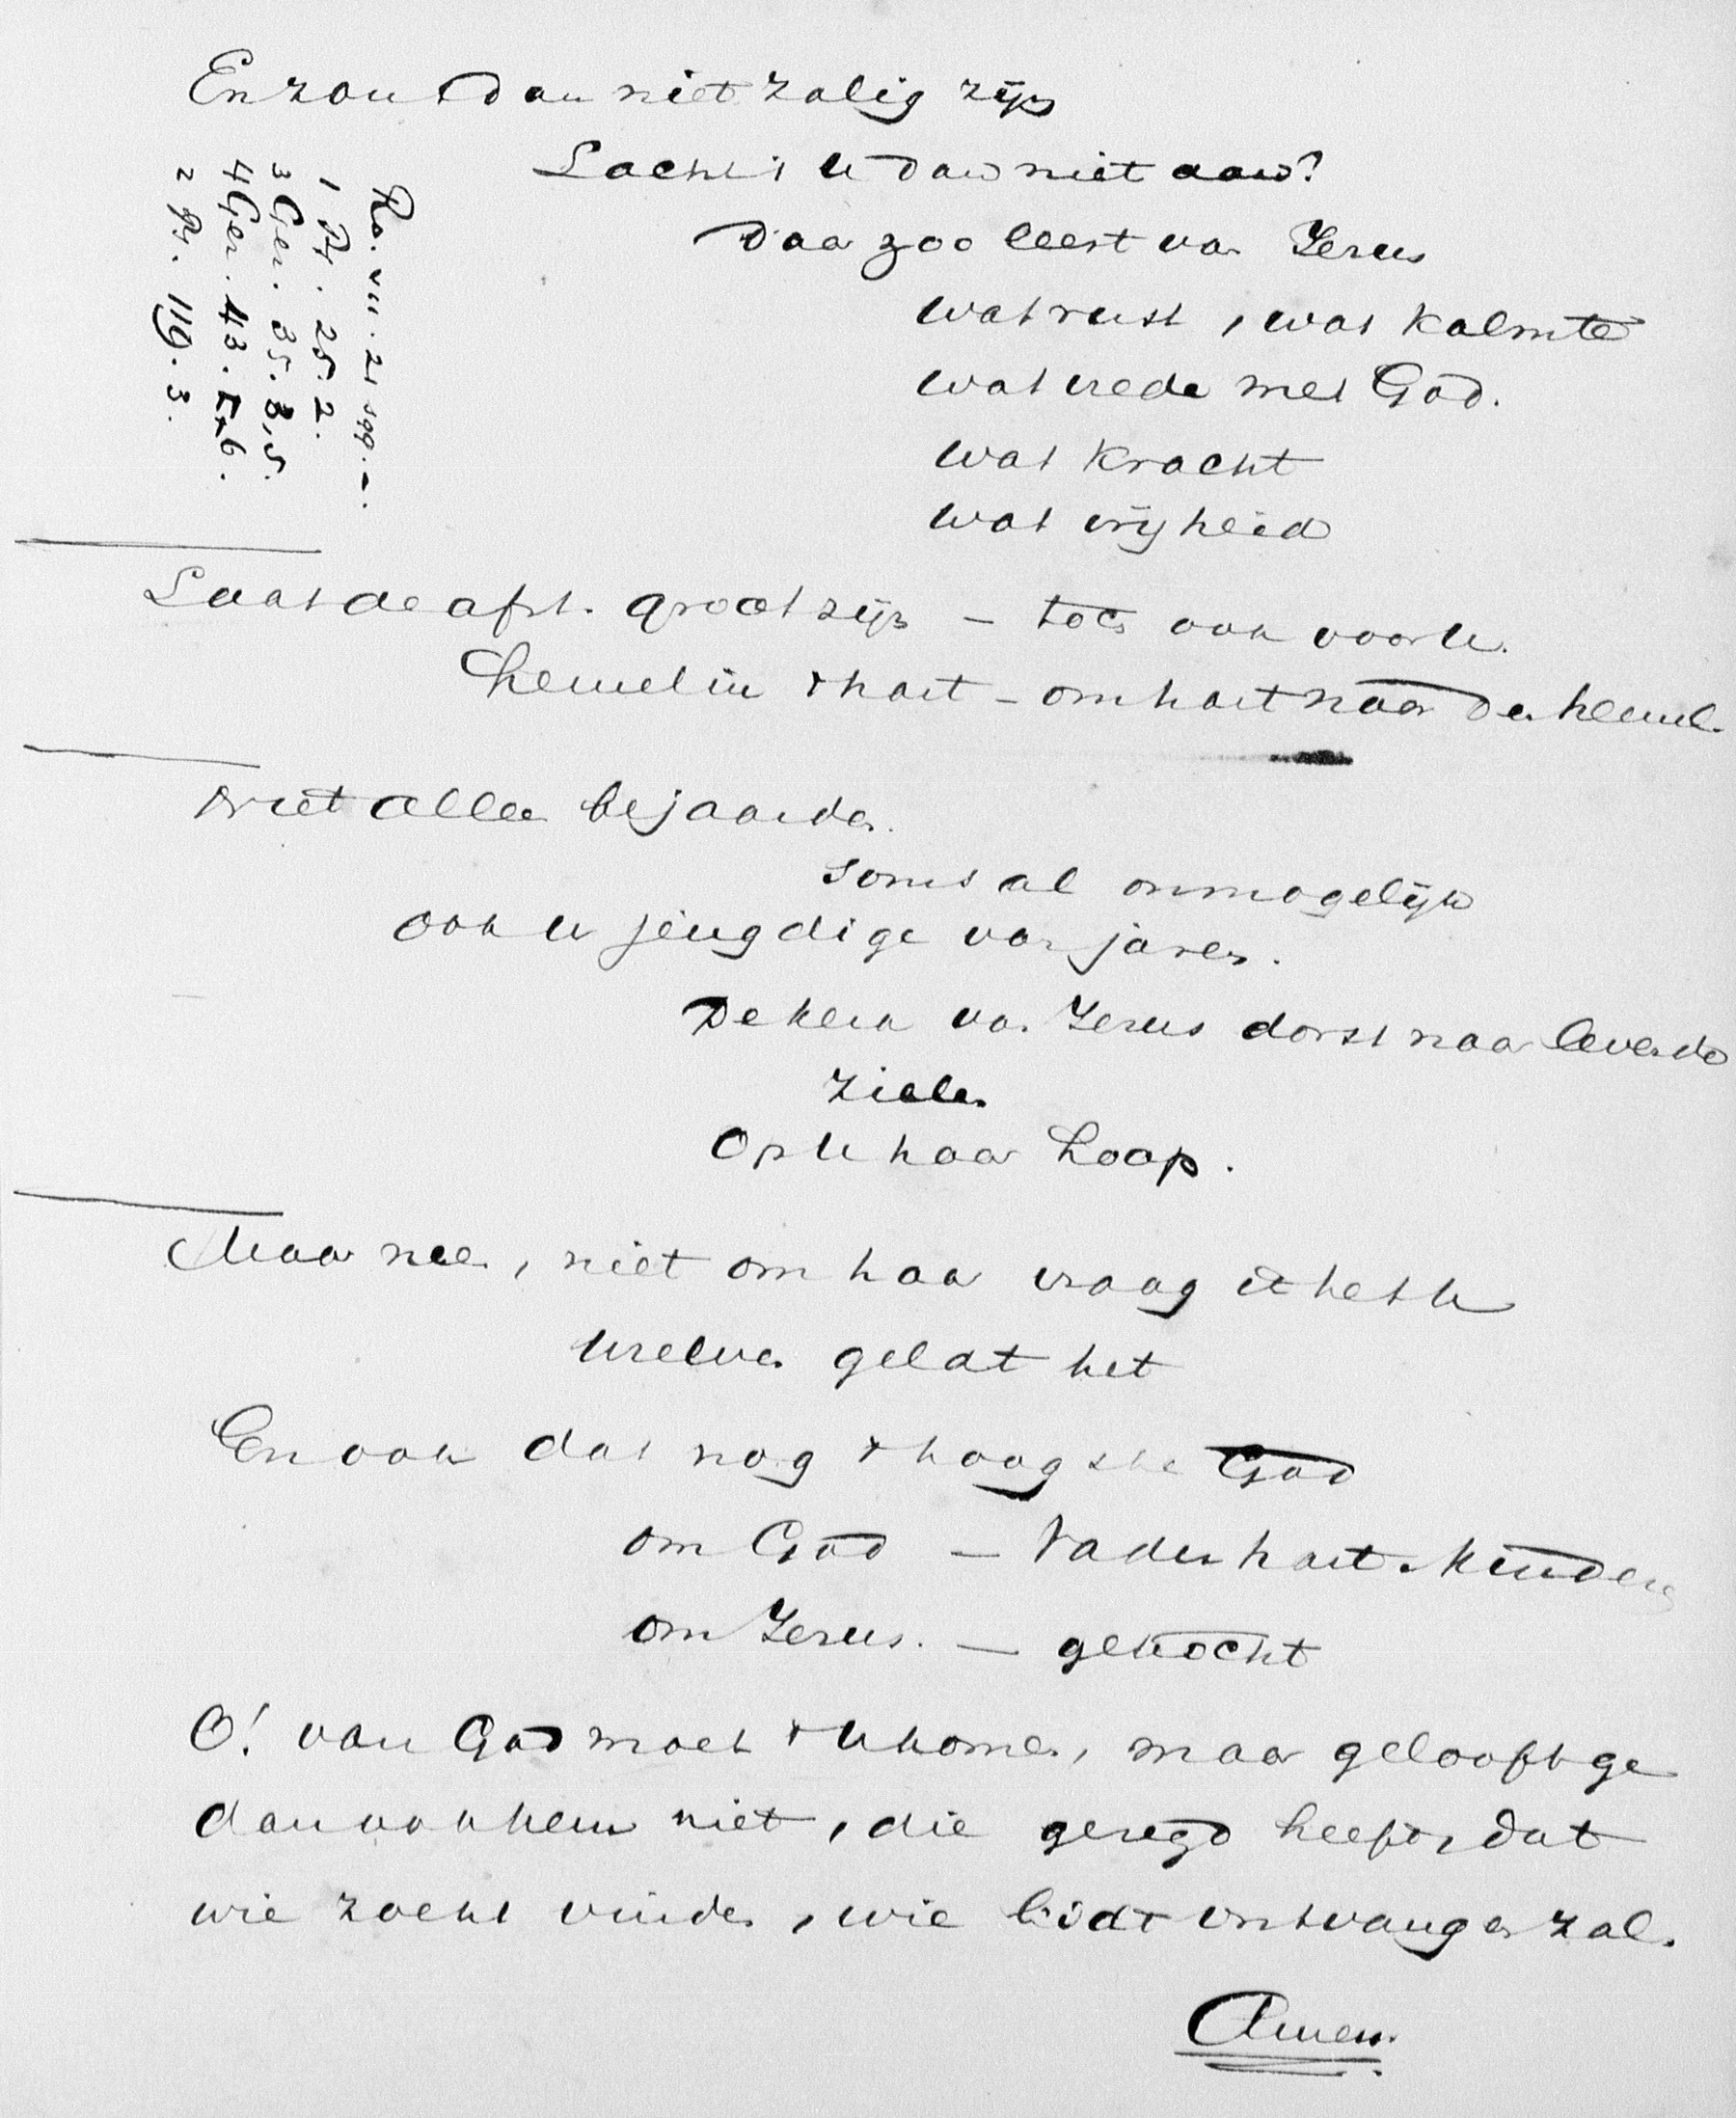 En zou t dan niet zalig zijn
Lacht 't U dan niet aan?
Daar zoo leest van Jezus
wat rust, wat kalmte
wat vrede met God.
wat kracht
wat vrijheid
Ro. VII. 21 sqq. -.
1 Ps. 25. 2.
3 Gez. 35. 3, 5.
4 Gez. 43. 5, 6.
2 Ps. 119. 3.
Laat de afst. groot zijn – toch ook voor U.
hemel in 't hart – om hart naar den hemel.
Niet allen bejaarden.
soms al onmogelijk
ook U jeugdige van jaren.
De kerk van Jezus dorst naar levende
zielen
Op U haar hoop.
Maar neen, niet om haar vraag ik het U
Uzelven geldt het
En ook dat nog 't hoogste God
om God – Vaderhart. kinderen
om Jezus. – gekocht
O! van God moet 't U komen, maar gelooft ge
dan ook hem niet, die gezegd heeft, dat
wie zoekt vinden, wie bidt ontvangen zal.
Amen.